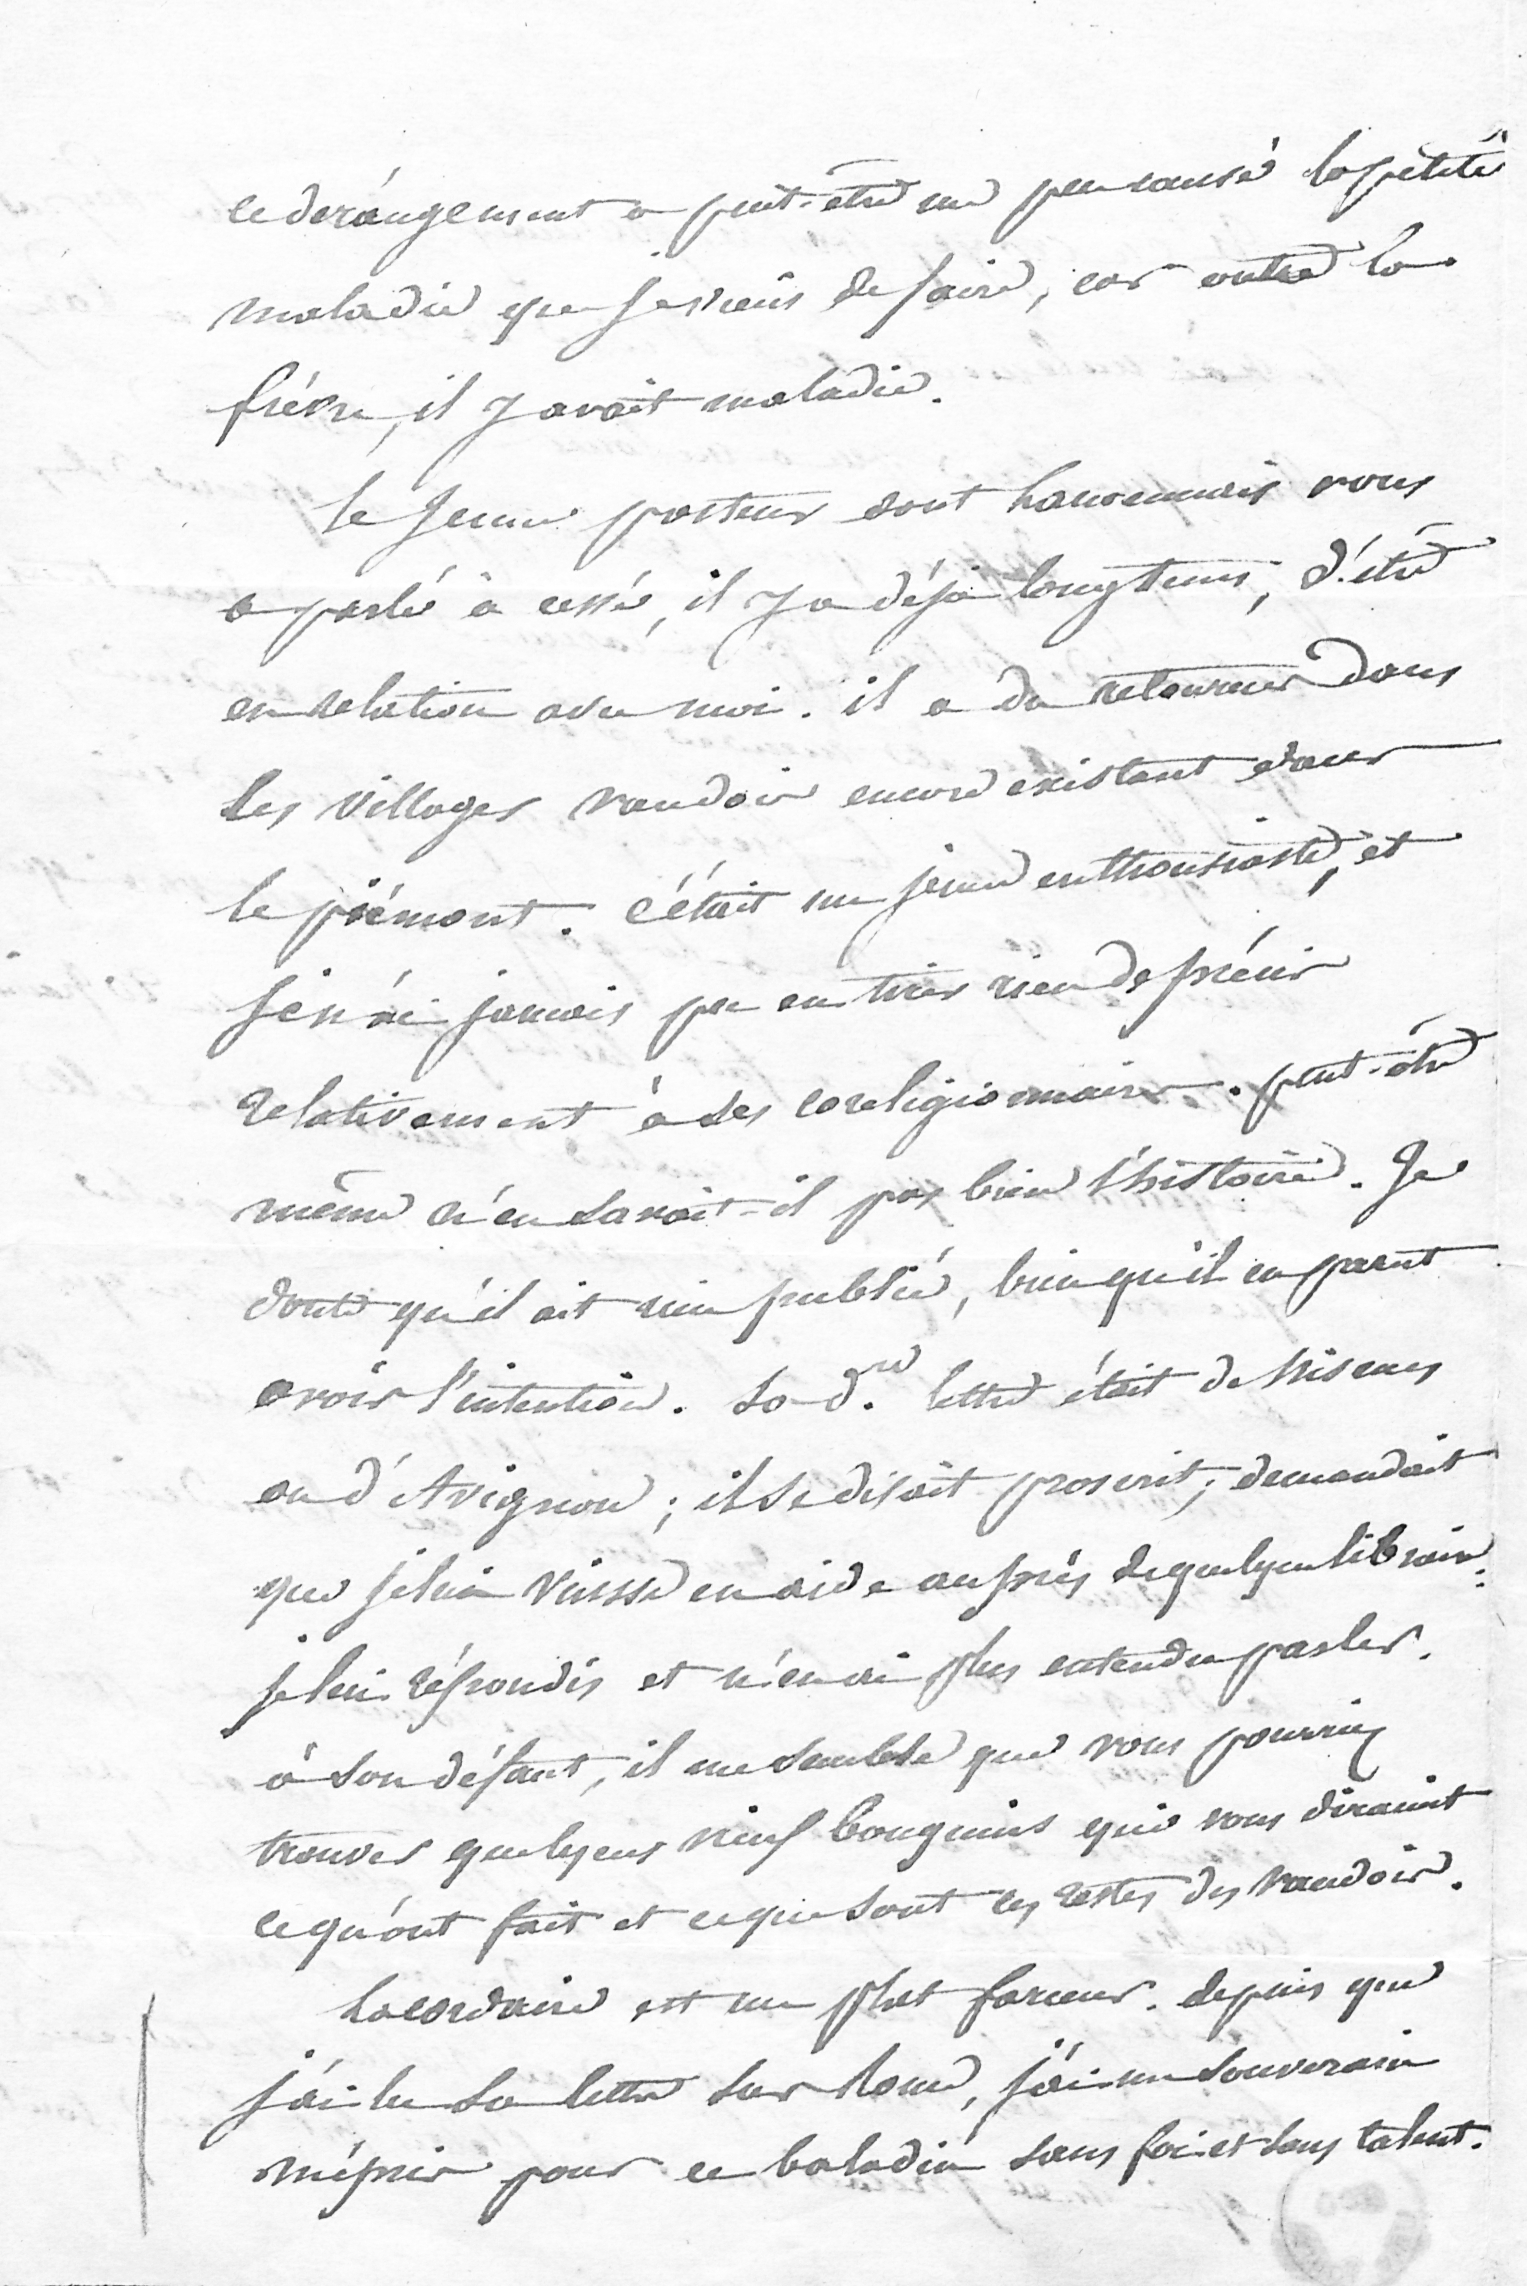 ce derángement a peut-être un peu causé la petite
maladie que je viens de faire, car outre la
fiévre, il y avait maladie.
le jeune pasteur dont vous
a parlé à cessé, il y a déjà longtems, d'être
en relation avec moi. il a du retourner dans
les villages vaudois encore existant dans
le piémont. c'était un jeune enthousiaste, et
je n'ai jamais pu en tirer rien de précis
relativement à ses coreligionnaires. peut-être
même n'en savait-il pas bien l'histoire. Je
doute qu'il ait rien publié, bien qu'il en parut
avoir l'intention. sa d.re lettre était de Nismes
ou d'Avignon ; il se disait proscrit ; demandait
que je lui vinsse en aide auprès de quelque libraire.
je lui répondis et n'en ai plus entendu parler.
à son défaut, il me semble que vous pourriez
trouver quelques vieux bouquins qui vous diraient
ce qu'ont fait et ce que sont les restes des vaudois.
Lacordaire est un plat farceur. depuis que
j'ai lu sa lettre sur Rome, j'ai un souverain
mépris pour ce baladin sans foi et sans talent.